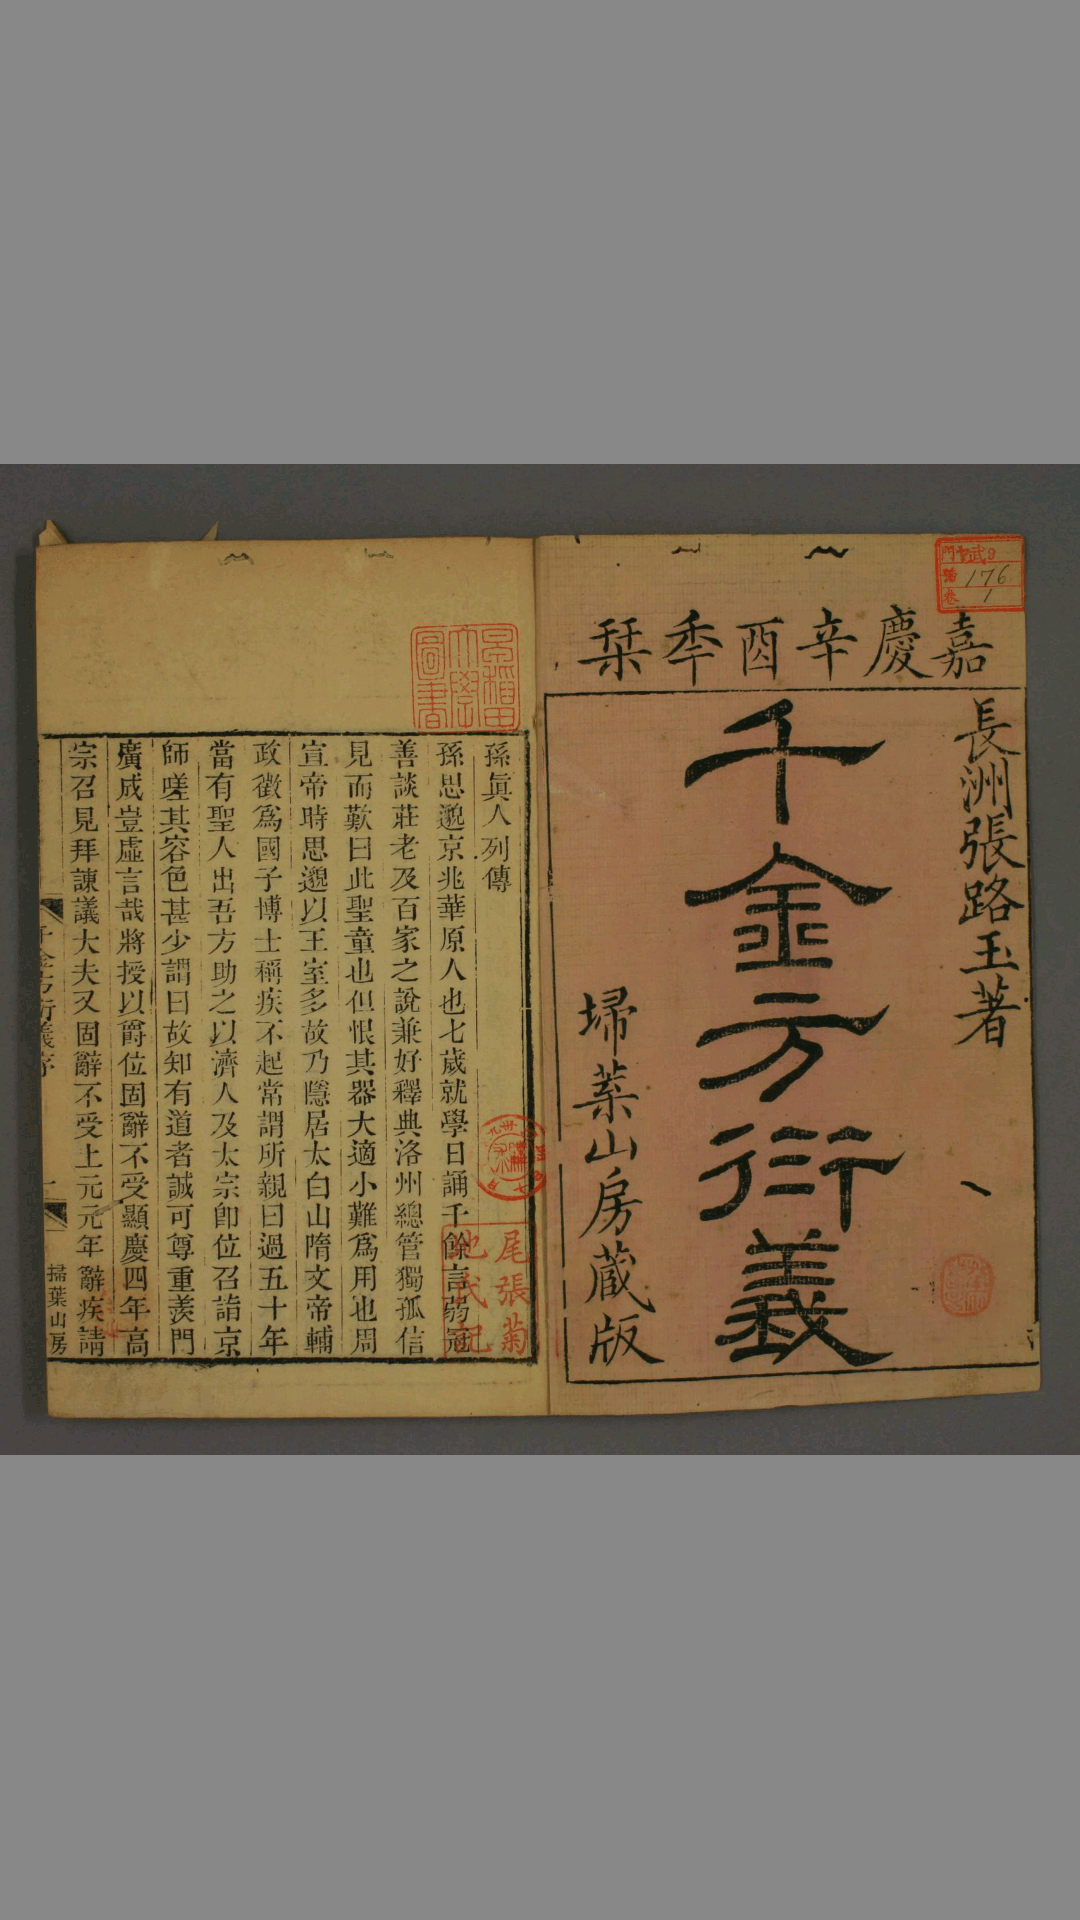 嘉慶辛酉季栞
長洲張路玉著
千金方衍義
埽葉山房蔵版
176
1
孫眞人列傳
孫思邈京兆華原人也七歲就學日誦千餘言弱冠
善談莊老及百家之說兼好釋典洛州總管獨孤信
見而歎曰此聖童也但恨其器大適小難爲用也周
宣帝時思邈以王室多故乃隱居太白山隋文帝輔
政徵爲國子博士稱疾不起常謂所親曰過五十年
當有聖人出吾方助之以濟人及太宗卽位召詣京
師嗟其容色甚少謂曰故知有道者誠可尊重羨門
廣成豈虛言哉將授以爵位固辭不受顯慶四年高
宗召見拜諫議大夫又固辭不受上元元年辭疾請
千金方衍義序
一
掃葉山房
早稲田大學圖書
尾張菊
池氏記